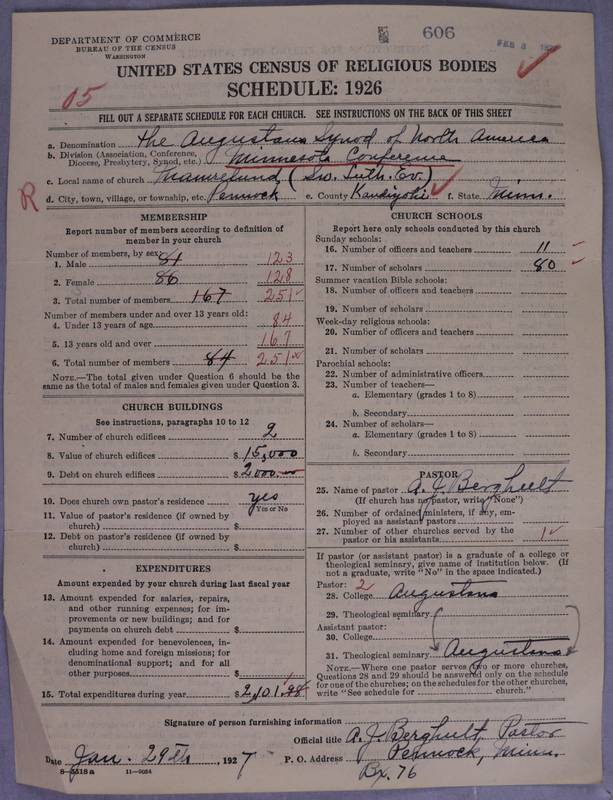 DEPARTMENT OF COMMERCE
BUREAU OF THE CENSUS
WASHINGTON
606
FEB 3 192
UNITED STATES CENSUS OF RELIGIOUS BODIES
SCHEDULE: 1926
05
FILL OUT A SEPARATE SCHEDULE FOR EACH CHURCH. SEE INSTRUCTIONS ON THE BACK OF THIS SHEET
a. Denomination The Augustana Synod of North America
b. Division (Association, Conference, Diocese, Presbytery, Synod, etc.) Minnesota Conference
c. Local name of church Mamrelund (Sw. Luth. Ev.)
R
d. City, town, village, or township, etc. Pennock e. County Kandiyohi f. State Minn.
MEMBERSHIP
Report number of members according to definition of
member in your church
Number of members, by sex:
1. Male 81 123
2. Female 86 128
3. Total number of members 167 251
Number of members under and over 13 years old:
4. Under 13 years of age 84
5. 13 years old and over 167
6. Total number of members 84 251
NOTE.—The total given under Question 6 should be the
same as the total of males and females given under Question 3.
CHURCH BUILDINGS
See instructions, paragraphs 10 to 12
7. Number of church edifices 2
8. Value of church edifices $15,000
9. Debt on church edifices $2000.00
10. Does church own pastor's residence yes
Yes or No
11. Value of pastor's residence (if owned by
church) $
12. Debt on pastor's residence (if owned by
church) $
EXPENDITURES
Amount expended by your church during last fiscal year
13. Amount expended for salaries, repairs,
and other running expenses; for im-
provements or new buildings; and for
payments on church debt $
14. Amount expended for benevolences, in-
cluding home and foreign missions; for
denominational support; and for all
other purposes $
15. Total expenditures during year $2,101.98
CHURCH SCHOOLS
Report here only schools conducted by this church
Sunday schools:
16. Number of officers and teachers 11
17. Number of scholars 80
Summer vacation Bible schools:
18. Number of officers and teachers
19. Number of scholars
Week-day religious schools:
20. Number of officers and teachers
21. Number of scholars
Parochial schools:
22. Number of administrative officers
23. Number of teachers—
a. Elementary (grades 1 to 8)
b. Secondary
24. Number of scholars—
a. Elementary (grades 1 to 8)
b. Secondary
PASTOR
25. Name of pastor A. J. Berghult
(If church has no pastor, write "None")
26. Number of ordained ministers, if any, em-
ployed as assistant pastors
27. Number of other churches served by the
pastor or his assistants 1
If pastor (or assistant pastor) is a graduate of a college or
theological seminary, give name of institution below. (If
not a graduate, write "No" in the space indicated.)
Pastor: 2
28. College Augustana
29. Theological seminary
Assistant pastor:
30. College
31. Theological seminary Augustana
NOTE.—Where one pastor serves two or more churches,
Questions 28 and 29 should be answered only on the schedule
for one of the churches; on the schedules for the other churches,
write "See schedule for church."
Signature of person furnishing information
Official title A. J. Berghult, Pastor
Date Jan. 29th, 1927 P. O. Address Pennock, Minn.
Bx. 76
8—5518 a 11—9034